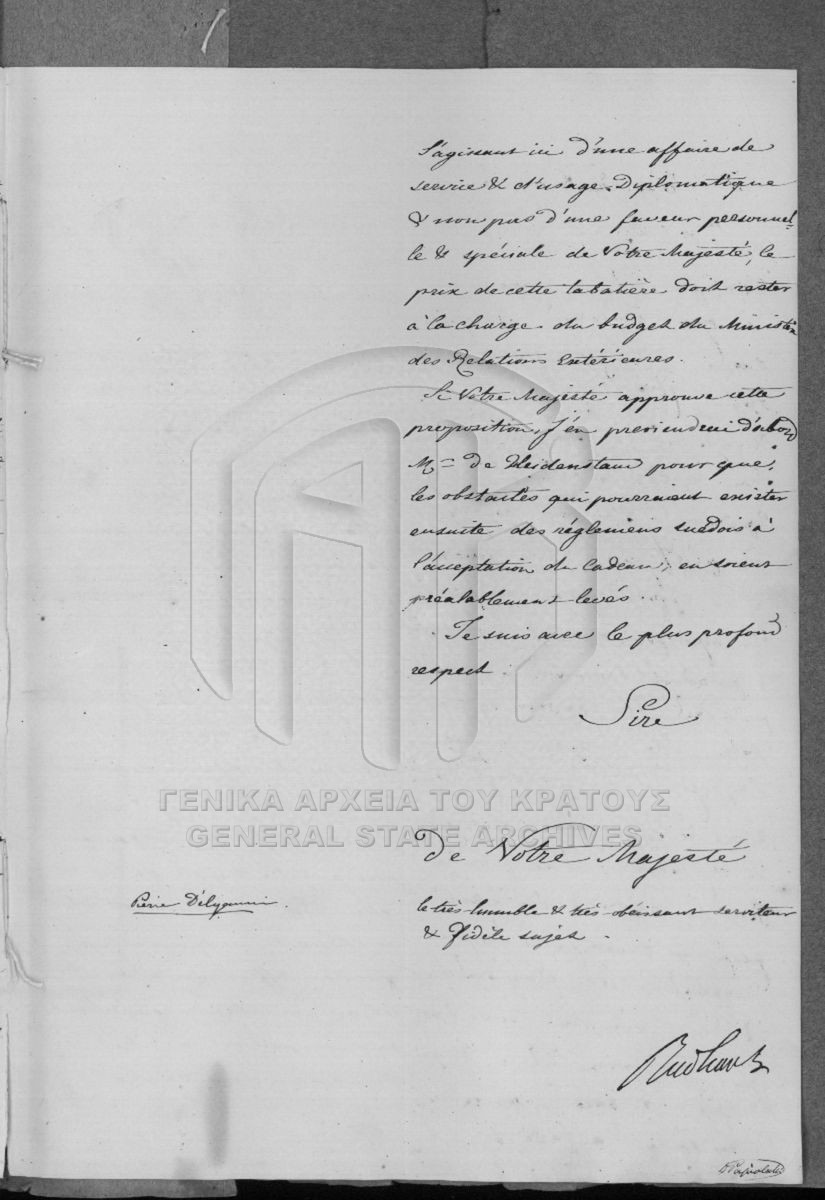 S'agissant ici d'une affaire de
service & d'usage Diplomatique
& non pas d'une faveur personnel-
le & spéciale de Votre Majesté, le
prix de cette tabatière doit rester
à la charge du budget du Ministère
des Relations Extérieures.
Si Votre Majesté approuve cette
proposition, j'en previendrai d'abord
Mr de Heidenstam pour que,
les obstacles qui pourraient exister
ensuite des réglemens suedois à
l'acceptation du Cadeau, en soient
préalablement levés.
Je suis avec le plus profond
respect
Sire
ΓΕΝΙΚΑ ΑΡΧΕΙΑ ΤΟΥ ΚΡΑΤΟΥΣ
GENERAL STATE ARCHIVES
de Votre Majesté
Pierre Délyanni.
le très humble & très obéissant serviteur
& fidèle sujet.
Rudhart